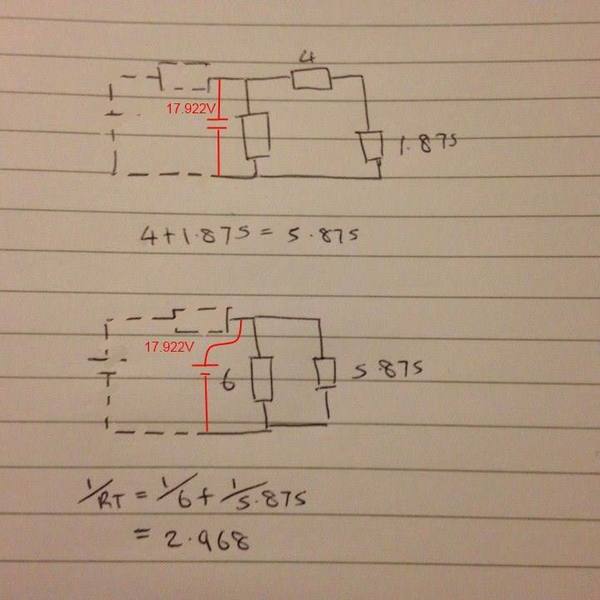 4
17.922V
1.875
4+1.875 = 5.875
17.922V
6
5.875
1/RT = 1/6 + 1/5.875
= 2.968